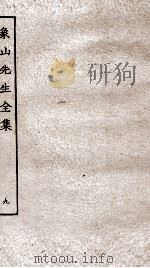 象山先生全集
九
研狗
mtoou.info